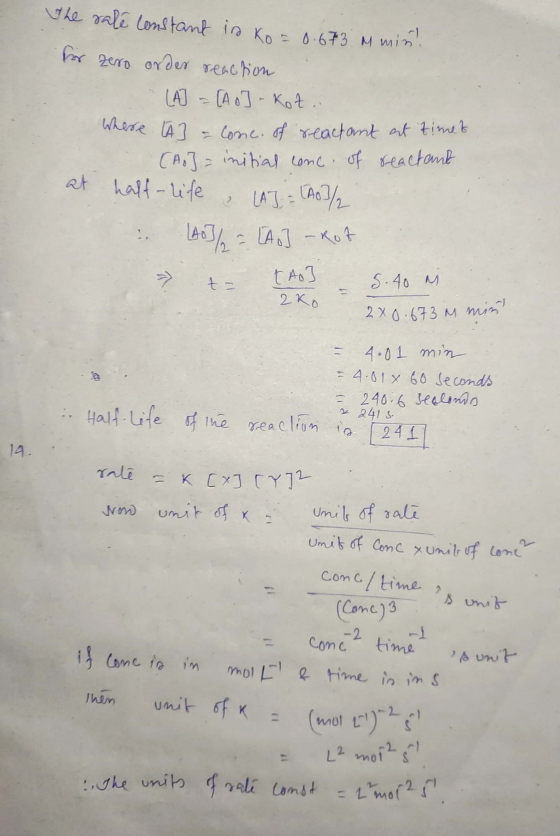 The rate constant is K₀ = 0.673 M min⁻¹.
For zero order reaction
[A] = [A₀] - K₀t.
Where [A] = Conc. of reactant at time t
[A₀] = initial conc. of reactant
at half-life, [A] = [A₀]/2
∴ [A₀]/2 = [A₀] - K₀t
⇒ t = [A₀] / 2K₀ = 5.40 M / 2×0.673 M min⁻¹
= 4.01 min
= 4.01 × 60 Seconds
= 240.6 Seconds
≈ 241 s
∴ Half-life of the reaction is 241
19.
rate = K [X] [Y]²
Now unit of K = units of rate / units of conc × unit of conc²
= Conc/time / (Conc)³ 's unit
= conc⁻² time⁻¹ 's unit
if conc is in mol L⁻¹ & time is in s
then unit of K = (mol L⁻¹)⁻² s⁻¹
= L² mol⁻² s⁻¹
∴ The units of rate const = L² mol⁻² s⁻¹.